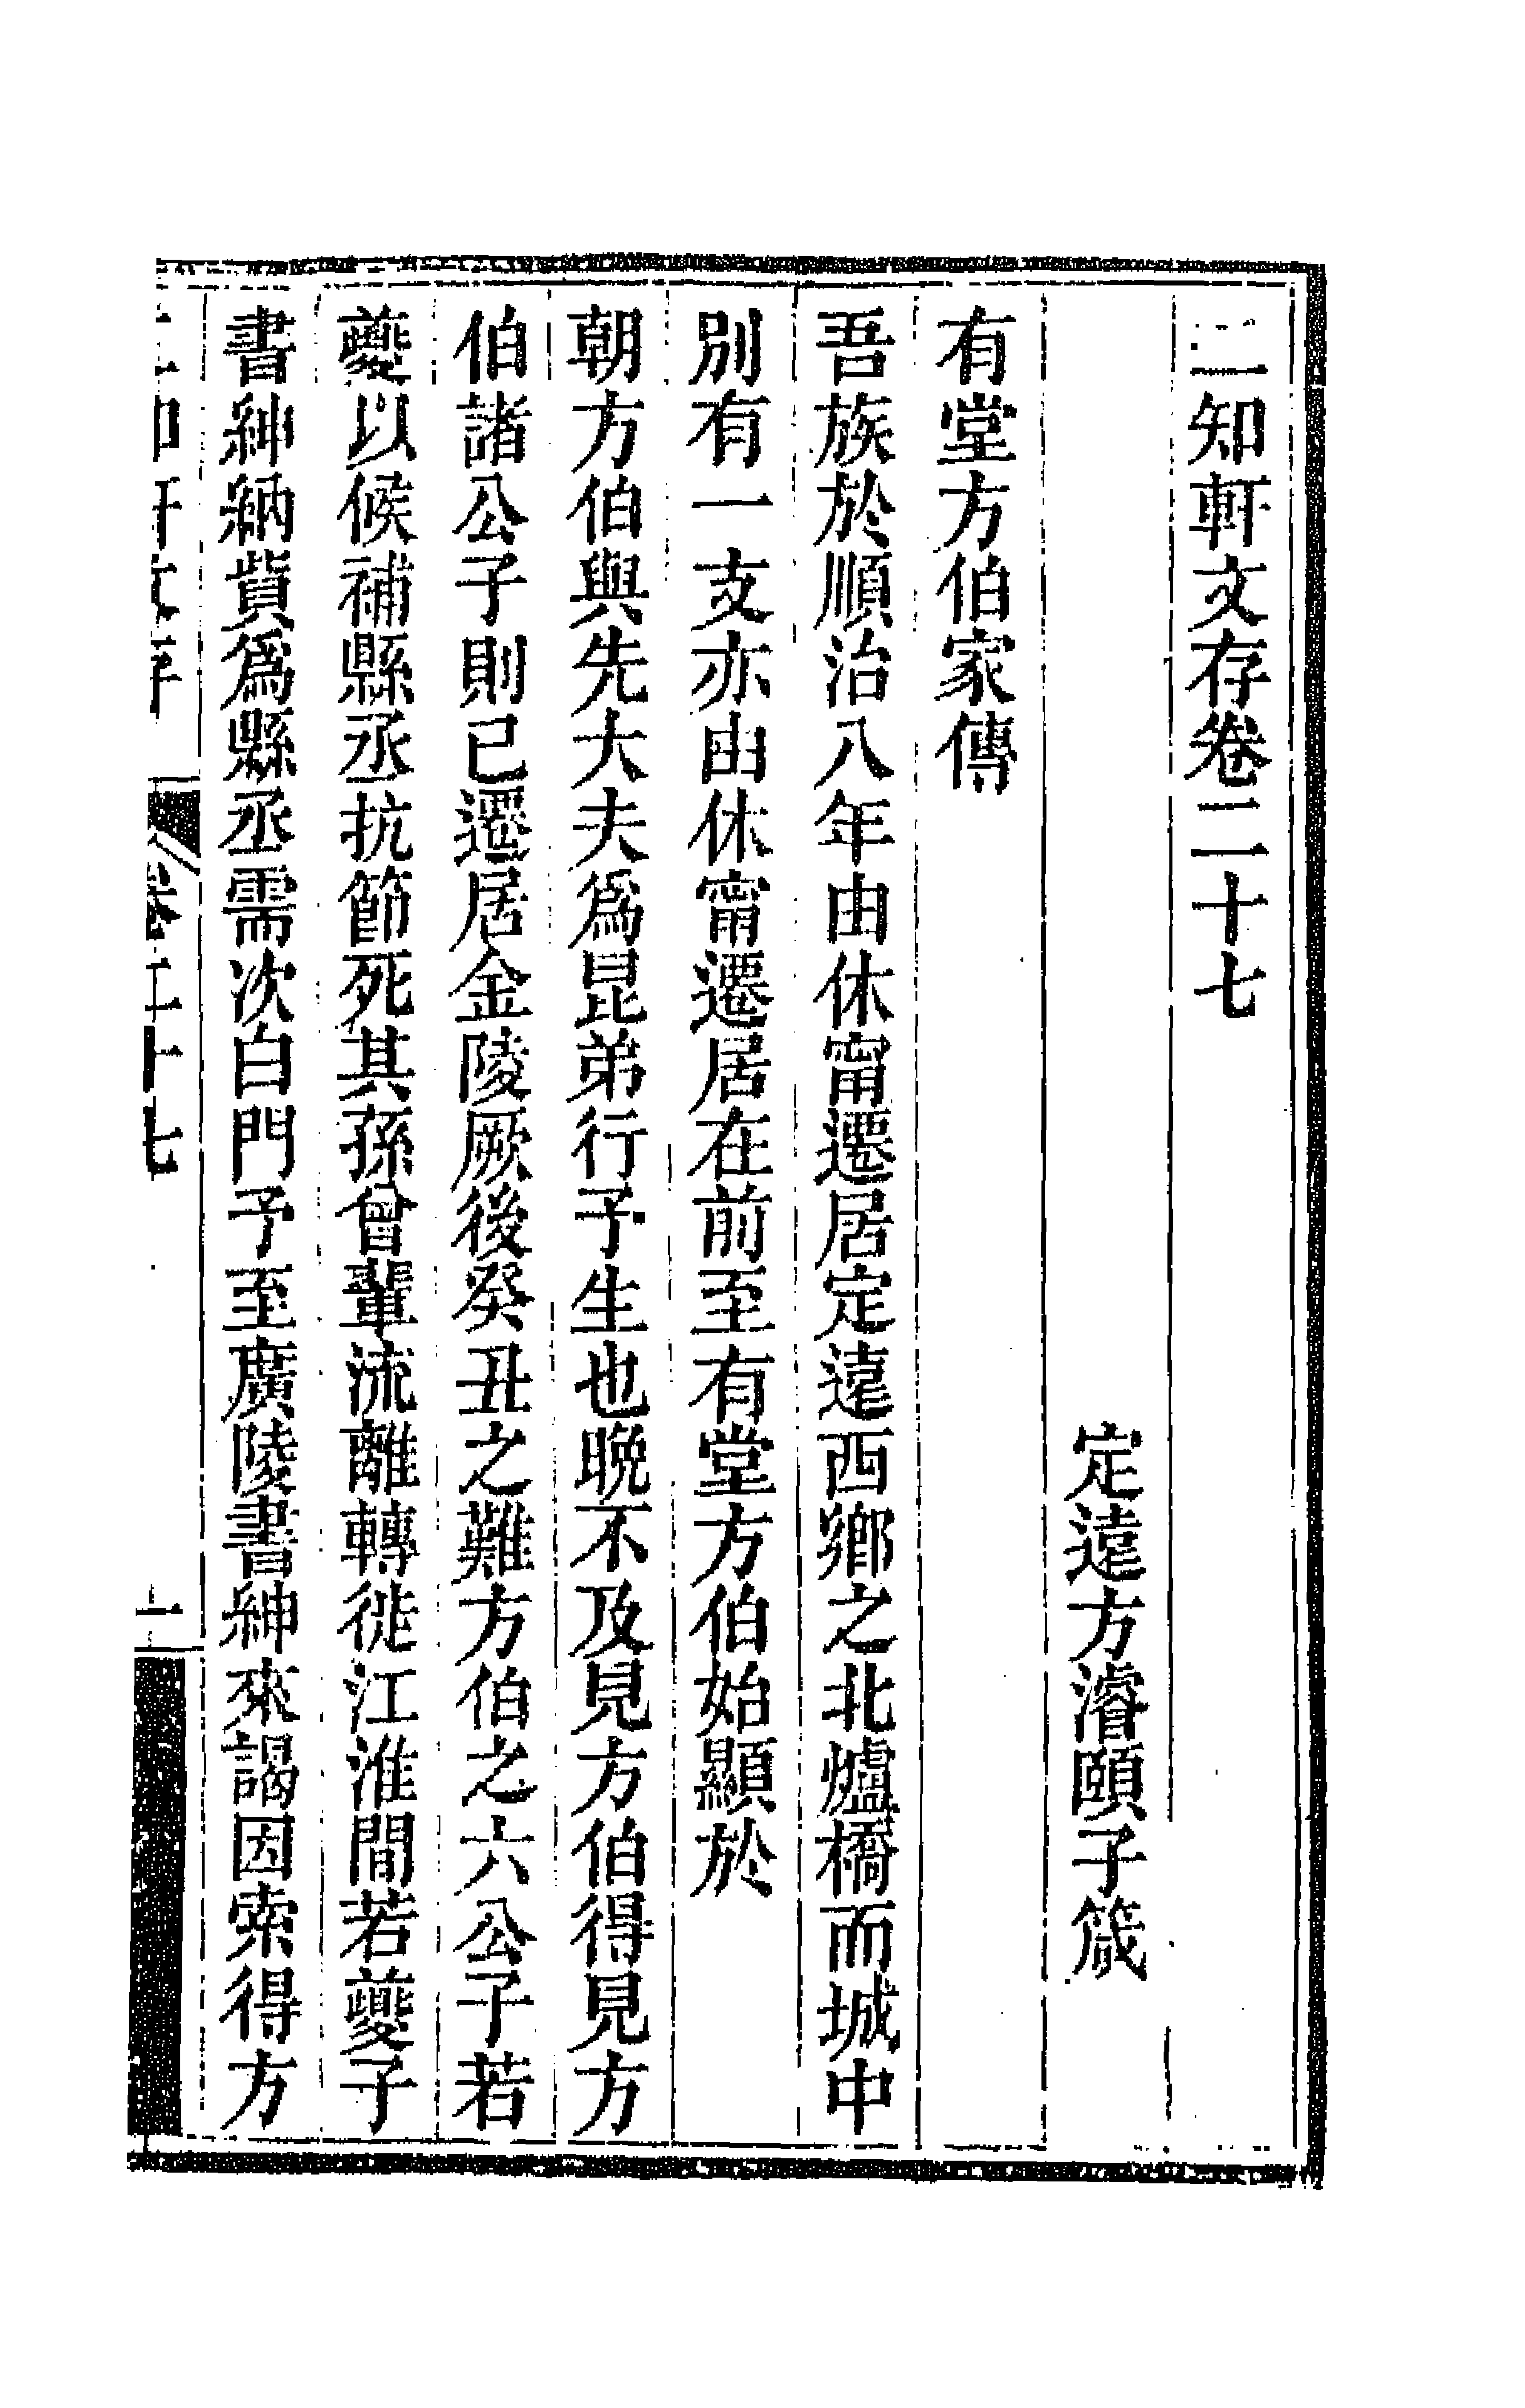 二知軒文存卷二十七
定遠方濬頤子箴
有堂方伯家傳
吾族於順治八年由休甯遷居定遠西鄉之北爐橋而城中
別有一支亦由休甯遷居在前至有堂方伯始顯於
朝方伯與先大夫爲昆弟行予生也晚不及見方伯得見方
伯諸公子則已遷居金陵厥後癸丑之難方伯之六公子若
夔以候補縣丞抗節死其孫曾輩流離轉徙江淮間若夔子
書紳納貲爲縣丞需次白門予至廣陵書紳來謁因索得方
二知軒文存 卷二十七 一